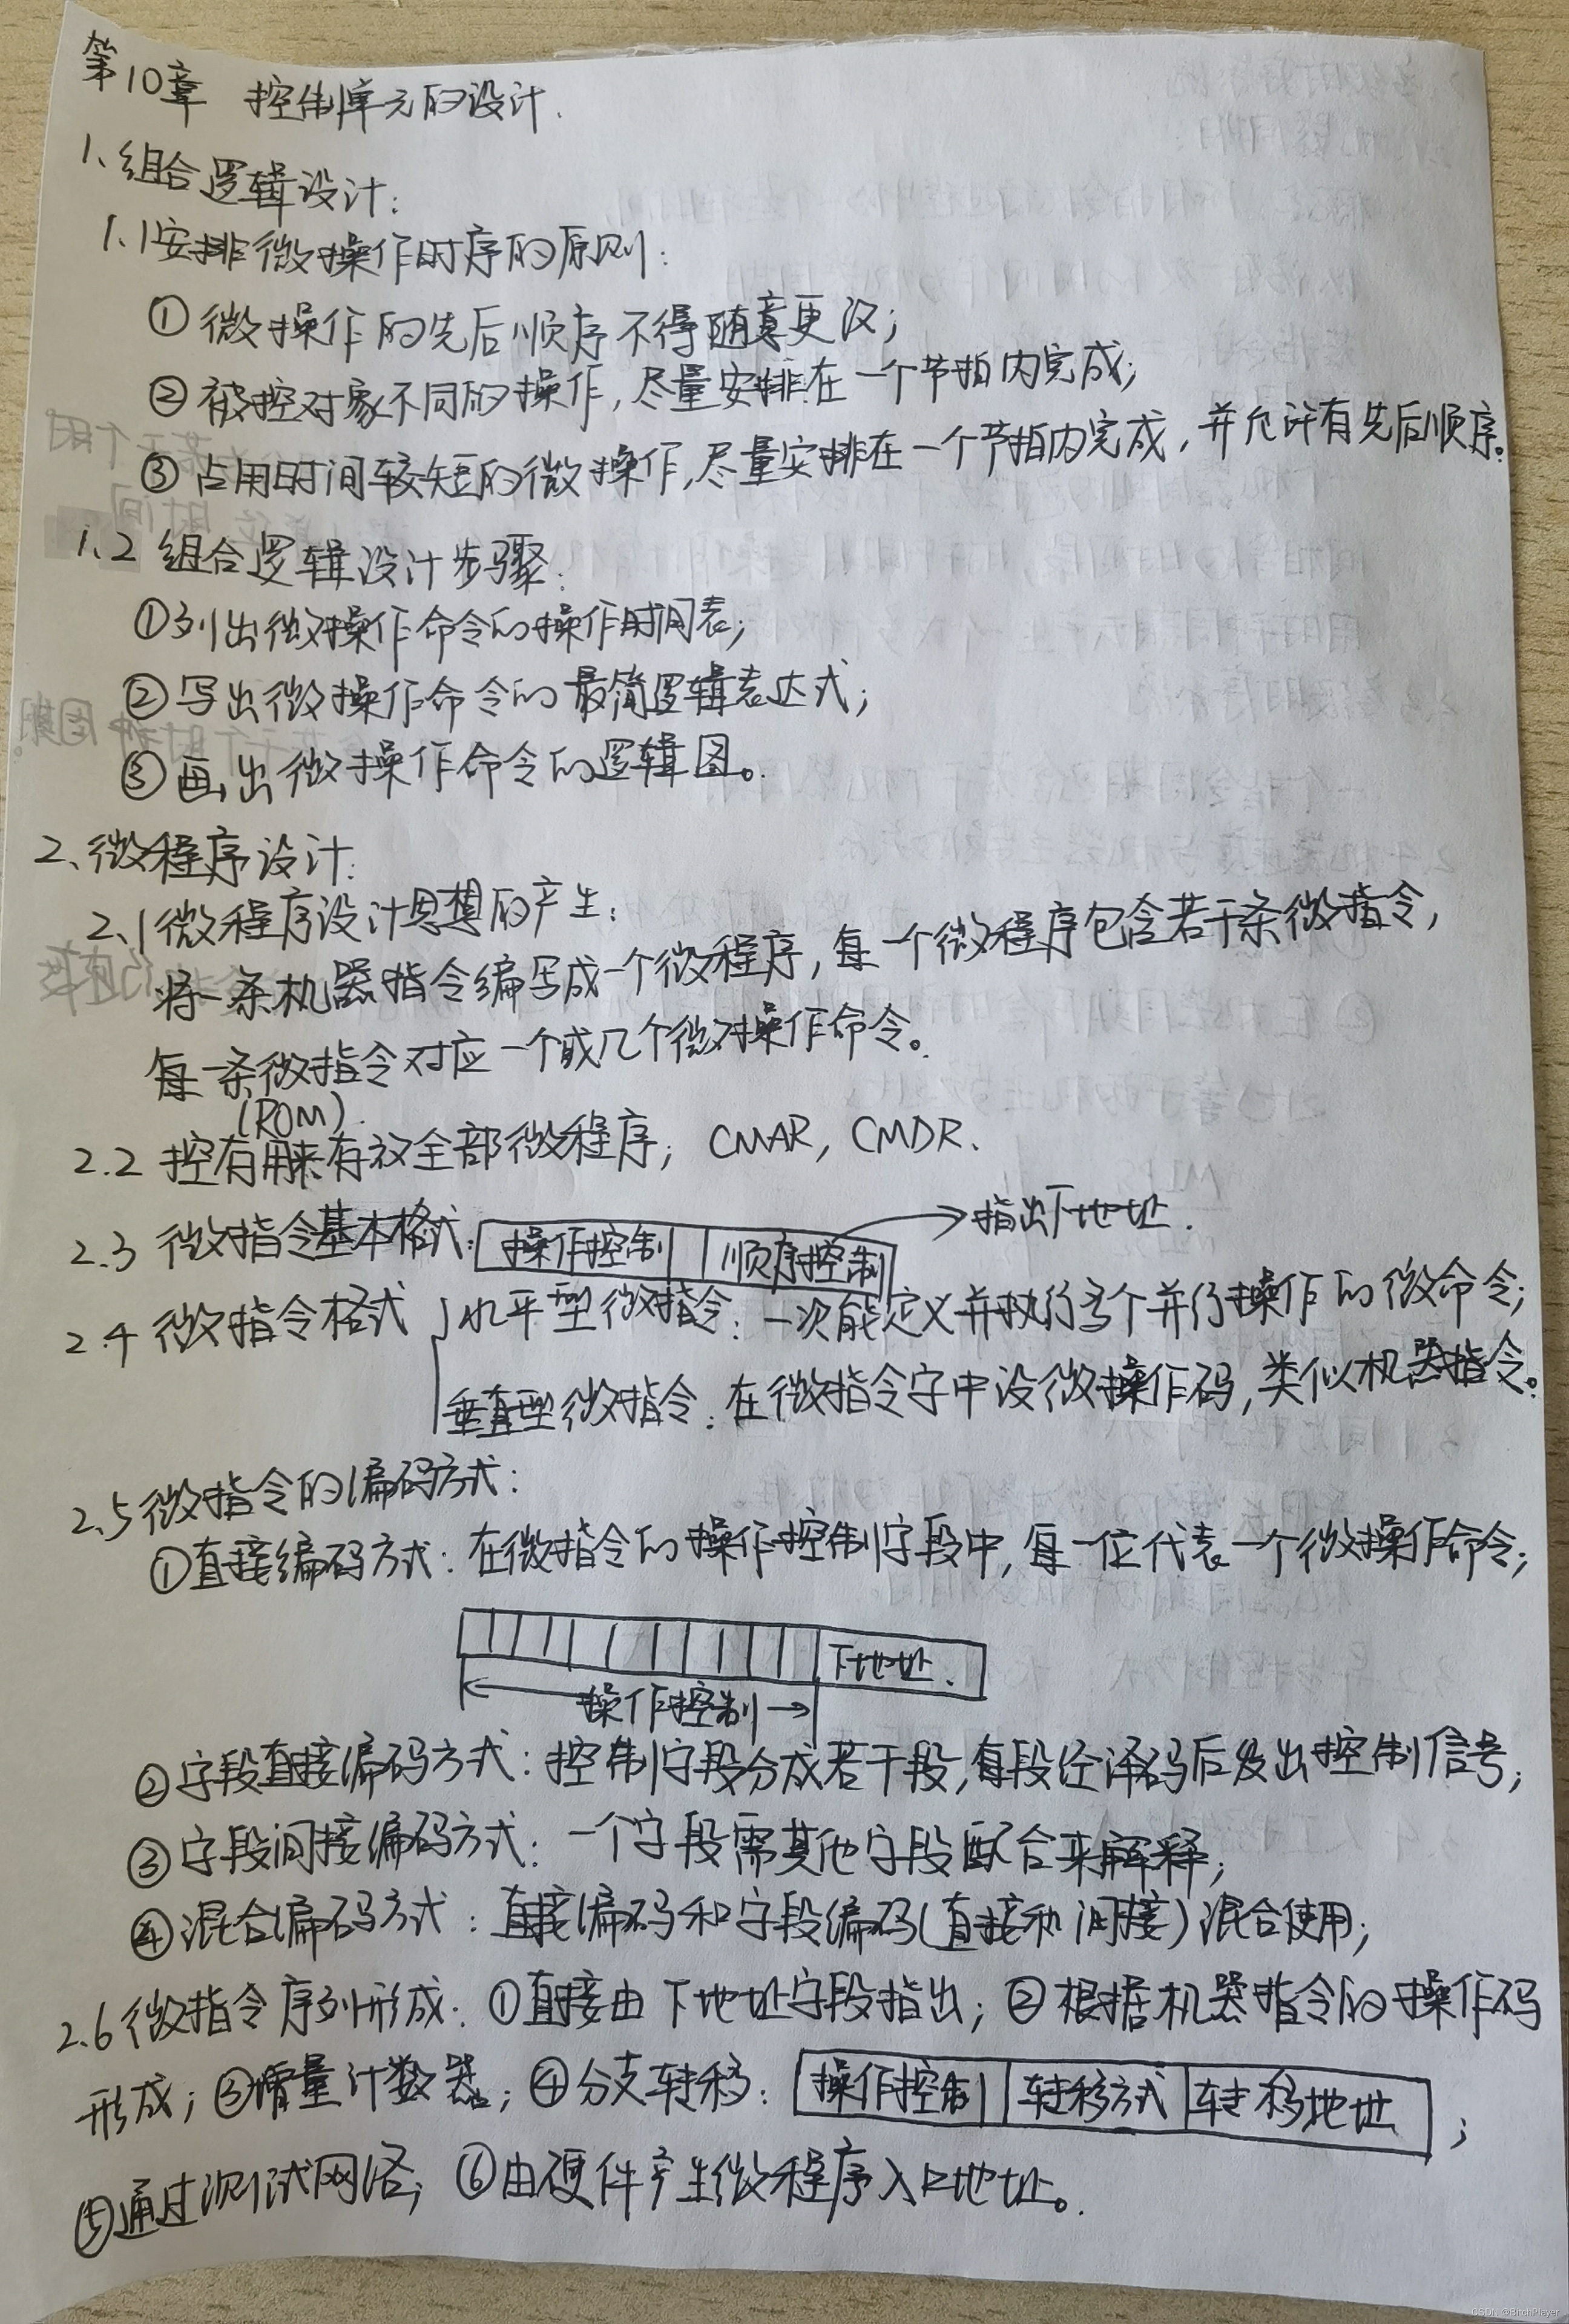 第10章 控制单元的设计.
1、组合逻辑设计:
1.1安排微操作时序的原则:
① 微操作的先后顺序不得随意更改;
② 被控对象不同的操作,尽量安排在一个节拍内完成;
③ 占用时间较短的微操作,尽量安排在一个节拍内完成,并允许有先后顺序。
1.2 组合逻辑设计步骤:
①列出微操作命令的操作时间表;
②写出微操作命令的最简逻辑表达式;
③画出微操作命令的逻辑图。
2、微程序设计:
2.1微程序设计思想的产生:
将一条机器指令编写成一个微程序,每一个微程序包含若干条微指令,
每一条微指令对应一个或几个微操作命令。
(ROM).
2.2 控存用来存放全部微程序; CMAR, CMDR.
2.3 微指令基本格式: 操作控制 顺序控制 指出下地址.
2.4 微指令格式 水平型微指令: 一次能定义并执行多个并行操作的微命令;
垂直型微指令: 在微指令字中设微操作码,类似机器指令。
2.5微指令的编码方式:
①直接编码方式: 在微指令的操作控制字段中,每一位代表一个微操作命令;
下地址.
操作控制
②字段直接编码方式: 控制字段分成若干段,每段经译码后发出控制信号;
③字段间接编码方式: 一个字段需其他字段配合来解释;
④混合编码方式: 直接编码和字段编码(直接和间接)混合使用;
2.6微指令序列形成: ①直接由下地址字段指出; ②根据机器指令的操作码
形成; ③增量计数器; ④分支转移: 操作控制 转移方式 转移地址 ;
⑤通过测试网络; ⑥由硬件产生微程序入口地址。
CSDN @BitchPlayer